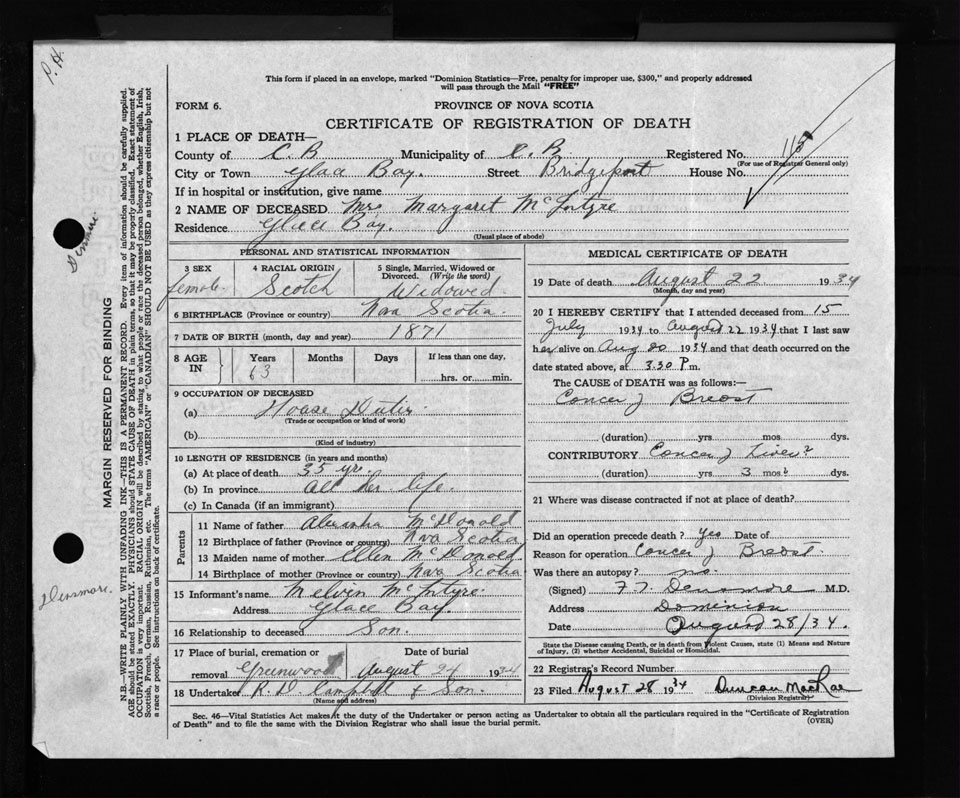 P. H.
This form if placed in an envelope, marked "Dominion Statistics—Free, penalty for improper use, $300," and properly addressed
will pass through the Mail "FREE"
FORM 6.
PROVINCE OF NOVA SCOTIA
CERTIFICATE OF REGISTRATION OF DEATH
1 PLACE OF DEATH—
County of C. B Municipality of C. B. Registered No. 115
(For use of Registrar General only)
City or Town Glace Bay. Street Bridgeport House No.
If in hospital or institution, give name
2 NAME OF DECEASED Mrs Margaret McIntyre
Residence Glace Bay.
(Usual place of abode)
PERSONAL AND STATISTICAL INFORMATION
3 SEX female
4 RACIAL ORIGIN Scotch
5 Single, Married, Widowed or Divorced. (Write the word) Widowed.
6 BIRTHPLACE (Province or country) Nova Scotia.
7 DATE OF BIRTH (month, day and year) 1871
8 AGE IN Years 63 Months Days If less than one day, hrs. or min.
9 OCCUPATION OF DECEASED
(a) House Duties.
(Trade or occupation or kind of work)
(b)
(Kind of industry)
10 LENGTH OF RESIDENCE (in years and months)
(a) At place of death 35 yr.
(b) In province all her life.
(c) In Canada (if an immigrant)
Parents
11 Name of father McDonald
12 Birthplace of father (Province or country) Nova Scotia
13 Maiden name of mother Ellen McDonald
14 Birthplace of mother (Province or country) Nova Scotia
15 Informant's name Melvin McIntyre.
Address Glace Bay.
16 Relationship to deceased Son.
17 Place of burial, cremation or removal Greenwood
Date of burial August 24 1934
18 Undertaker R. D. Campbell & Son.
(Name and address)
MEDICAL CERTIFICATE OF DEATH
19 Date of death August 22 1934
(Month, day and year)
20 I HEREBY CERTIFY that I attended deceased from 15
July 1934 to August 22 1934 that I last saw
her alive on Aug 20 1934 and that death occurred on the
date stated above, at 3.30 P.m.
The CAUSE OF DEATH was as follows:—
Cancer of Breast
(duration) yrs. mos. dys.
CONTRIBUTORY Cancer of Liver?
(duration) yrs. 3 mos.? dys.
21 Where was disease contracted if not at place of death?
Did an operation precede death? Yes Date of
Reason for operation Cancer of Breast.
Was there an autopsy? no.
(Signed) F. T. Densmore M.D.
Address Dominion
Date August 28/34.
State the Disease causing Death, or in death from Violent Causes, state (1) Means and Nature
of Injury, (2) whether Accidental, Suicidal or Homicidal.
22 Registrar's Record Number
23 Filed August 28 1934 Duncan MacRae
(Division Registrar)
Sec. 46—Vital Statistics Act makes it the duty of the Undertaker or person acting as Undertaker to obtain all the particulars required in the "Certificate of Registration
of Death" and to file the same with the Division Registrar who shall issue the burial permit.
(OVER)
MARGIN RESERVED FOR BINDING
N.B.—WRITE PLAINLY WITH UNFADING INK—THIS IS A PERMANENT RECORD. Every item of information should be carefully supplied.
AGE should be stated EXACTLY. PHYSICIANS should STATE CAUSE OF DEATH in plain terms, so that it may be properly classified. Exact statement of
OCCUPATION is very important. RACIAL ORIGIN will be described by stating to what people or race the deceased person belonged, whether English, Irish,
Scottish, French, German, Russian, Ruthenian, etc. The terms "AMERICAN" or "CANADIAN" SHOULD NOT BE USED as they express citizenship but not
a race or people. See instructions on back of certificate.
Densmore.